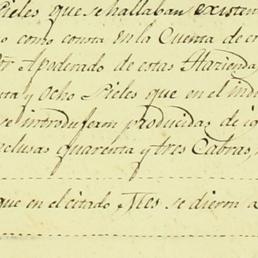 Pieles que se hallaban existen
como consta en la Cuenta de
Apoderado de estas Hazienda
ta y Ocho Pieles que en el indi
se introdujeron producidas de
clusas quarenta y tres Cabras,
que en el citado Mes se dieron a